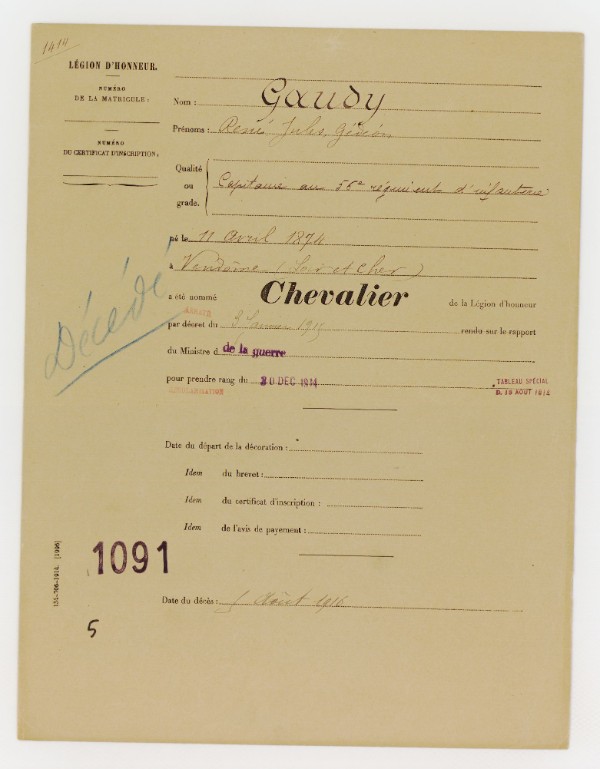 1414
LÉGION D'HONNEUR.
NUMÉRO
DE LA MATRICULE :
NUMÉRO
DU CERTIFICAT D'INSCRIPTION :
Nom : Gaudy
Prénoms : René Jules, Gédéon
Qualité ou grade. Capitaine au 56e régiment d'infanterie
né le 11 avril 1874
à Vendôme (Loir et Cher)
a été nommé Chevalier de la Légion d'honneur
par décret du 3 Janvier 1915 rendu sur le rapport
du Ministre d de la guerre
pour prendre rang du 30 DEC 1914
TABLEAU SPÉCIAL
Décédé
Date du départ de la décoration :
Idem du brevet :
Idem du certificat d'inscription :
Idem de l'avis de payement :
1091
Date du décès : Août 1916
5